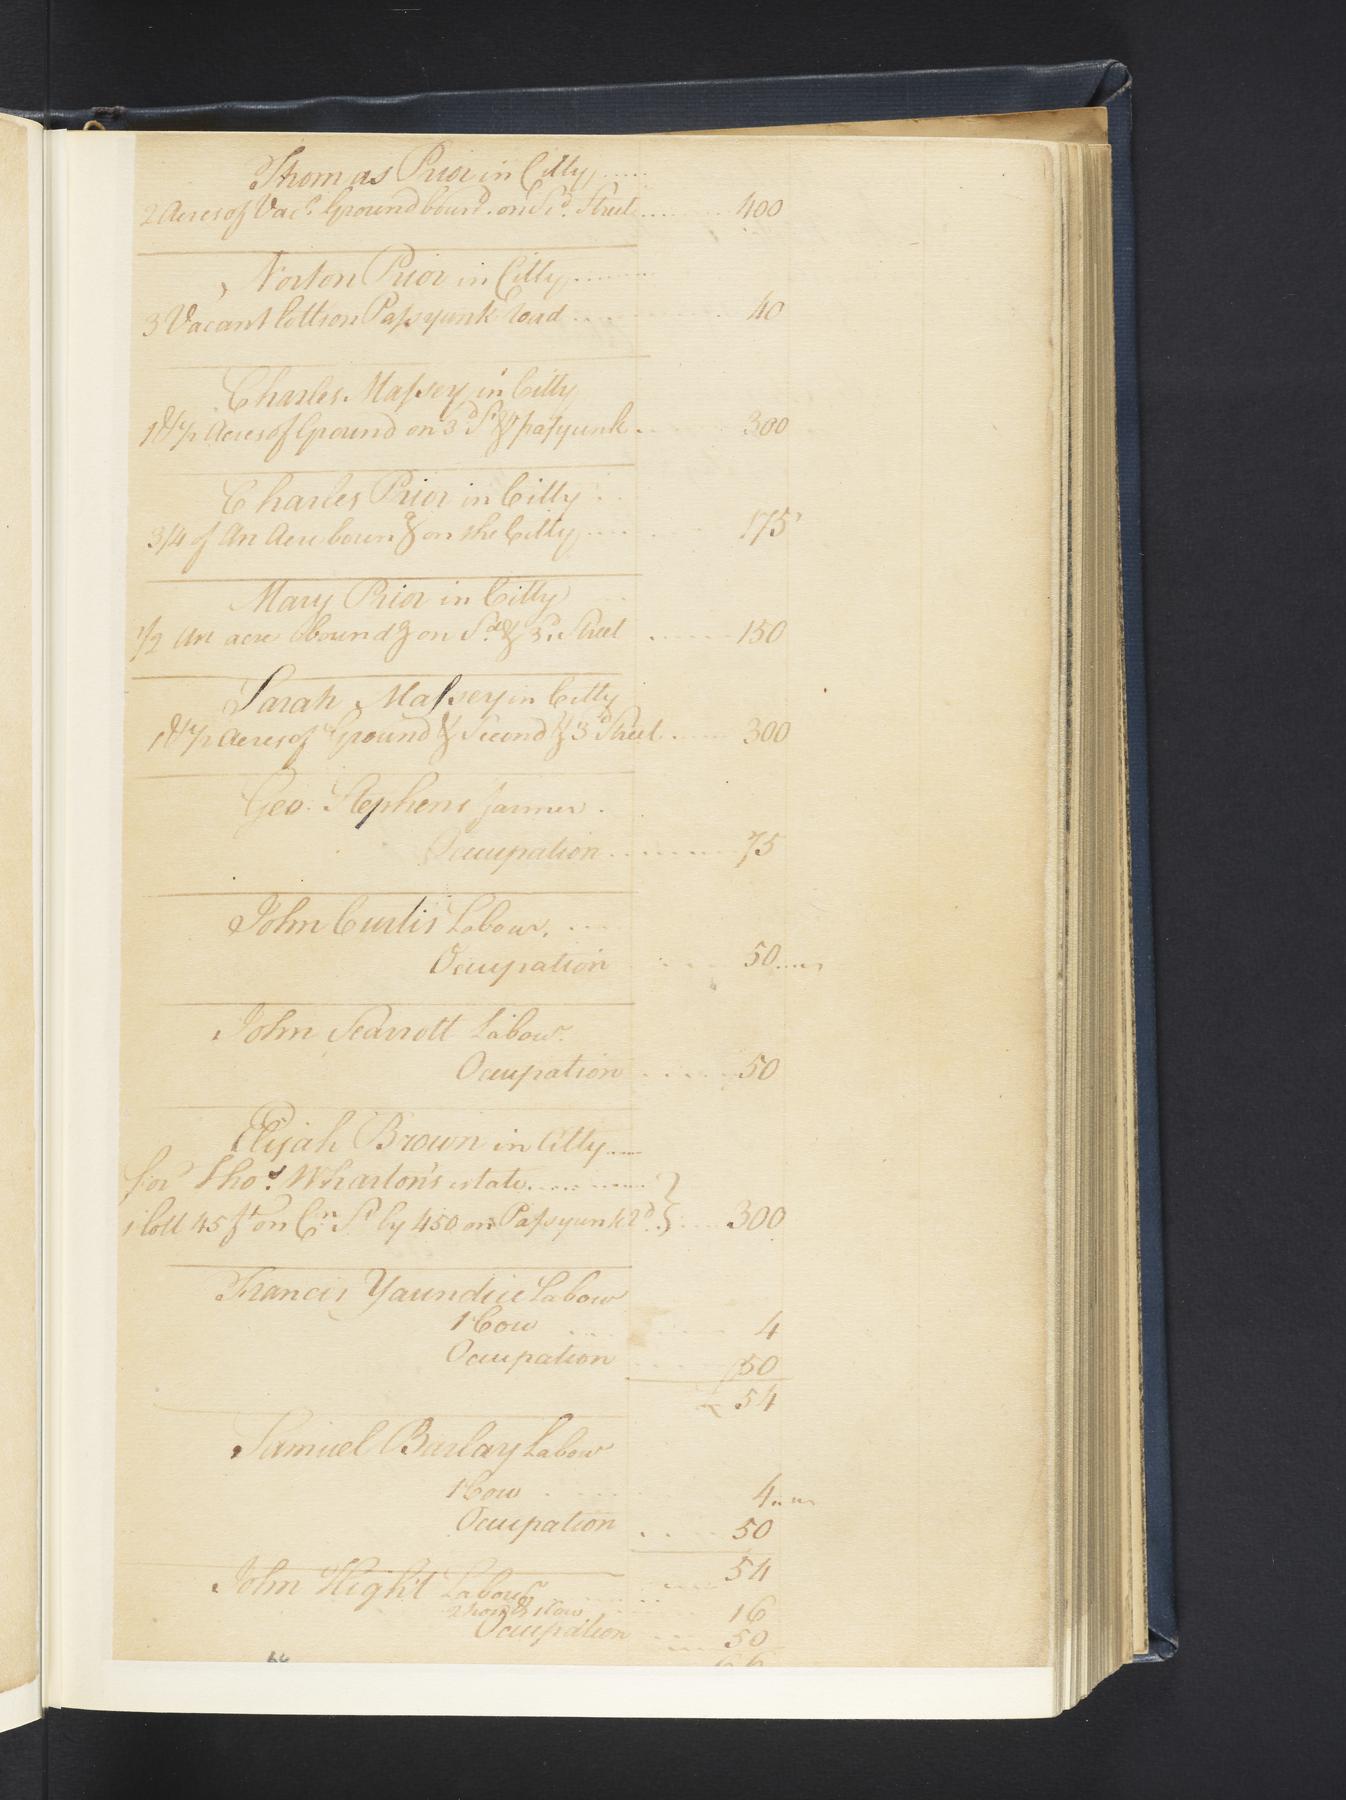 Thomas Prior in Citty
2 Acres of Vac.t Ground bound. on Sd. Street 400
Norton Prior in Citty
3 Vacant Lotts on Passyunk Road 40
Charles Massey in Citty
1 & 1/2 Acres of Ground on 3d St & passyunk 300
Charles Prior in Citty
3/4 of An Acre boun g on the Citty 175
Mary Prior in Citty
1/2 An acre bound g on Sd. & 3d. Street 150
Sarah Massey in Citty
1 & 1/2 Acres of Ground & Second & 3d Street 300
Geo. Stephens farmer
Occupation 75
John Curtis Labour.
Occupation 50
John Scarrott Labour.
Occupation 50
Elijah Brown in Citty
for Thos. Wharton's estate
1 Lott 45 ft on St by 450 on Passyunk Rd. 300
Francis Labour
1 Cow 4
Occupation 50
54
Samuel Barlay Labour
1 Cow 4
Occupation 50
54
John Hight Labour
16
Occupation 50
66